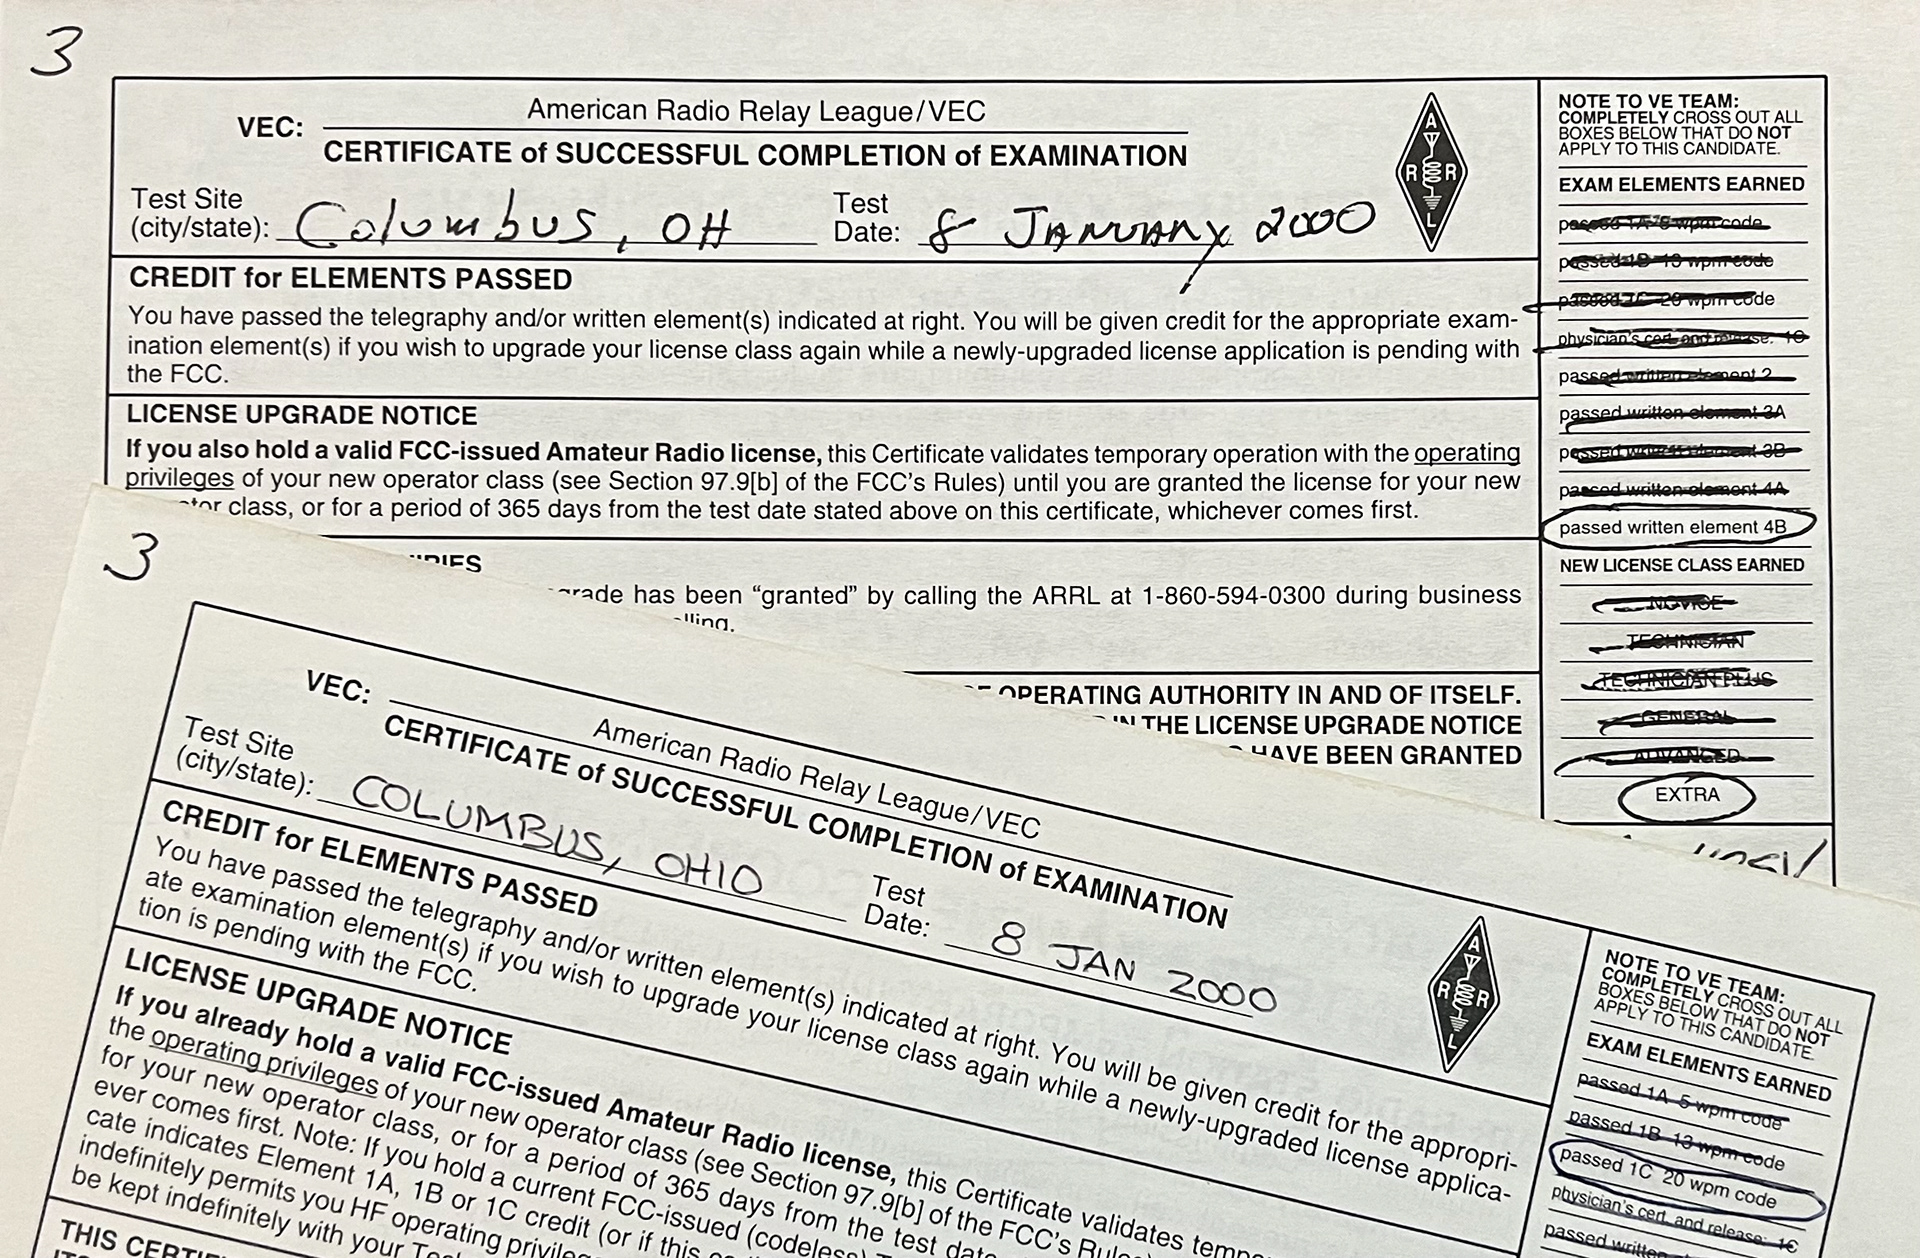 3
American Radio Relay League/VEC
VEC:
CERTIFICATE of SUCCESSFUL COMPLETION of EXAMINATION
Test Site
(city/state): Columbus, OH
Test
Date: 8 JANUARY 2000
A
R R
L
CREDIT for ELEMENTS PASSED
You have passed the telegraphy and/or written element(s) indicated at right. You will be given credit for the appropriate exam-
ination element(s) if you wish to upgrade your license class again while a newly-upgraded license application is pending with
the FCC.
LICENSE UPGRADE NOTICE
If you also hold a valid FCC-issued Amateur Radio license, this Certificate validates temporary operation with the operating
privileges of your new operator class (see Section 97.9[b] of the FCC's Rules) until you are granted the license for your new
class, or for a period of 365 days from the test date stated above on this certificate, whichever comes first.
has been "granted" by calling the ARRL at 1-860-594-0300 during business
OPERATING AUTHORITY IN AND OF ITSELF.
IN THE LICENSE UPGRADE NOTICE
HAVE BEEN GRANTED
NOTE TO VE TEAM:
COMPLETELY CROSS OUT ALL
BOXES BELOW THAT DO NOT
APPLY TO THIS CANDIDATE.
EXAM ELEMENTS EARNED
passed 1A 5 wpm code
passed 1B 13 wpm code
passed 1C 20 wpm code
physician's cert. and release: 1C
passed written element 2
passed written element 3A
passed written element 3B
passed written element 4A
passed written element 4B
NEW LICENSE CLASS EARNED
NOVICE
TECHNICIAN
TECHNICIAN PLUS
GENERAL
ADVANCED
EXTRA
3
American Radio Relay League/VEC
VEC:
CERTIFICATE of SUCCESSFUL COMPLETION of EXAMINATION
Test Site
(city/state): COLUMBUS, OHIO
Test
Date: 8 JAN 2000
A
R R
L
CREDIT for ELEMENTS PASSED
You have passed the telegraphy and/or written element(s) indicated at right. You will be given credit for the appropri-
ate examination element(s) if you wish to upgrade your license class again while a newly-upgraded license applica-
tion is pending with the FCC.
LICENSE UPGRADE NOTICE
If you already hold a valid FCC-issued Amateur Radio license, this Certificate validates
the operating privileges of your new operator class (see Section 97.9[b] of the FCC's Rules)
for your new operator class, or for a period of 365 days from the test
ever comes first. Note: If you hold a current FCC-issued (codeless)
cate indicates Element 1A, 1B or 1C credit (or if this
indefinitely permits you HF operating
be kept indefinitely with your
THIS
NOTE TO VE TEAM:
COMPLETELY CROSS OUT ALL
BOXES BELOW THAT DO NOT
APPLY TO THIS CANDIDATE.
EXAM ELEMENTS EARNED
passed 1A 5 wpm code
passed 1B 13 wpm code
passed 1C 20 wpm code
physician's cert. and release: 1C
passed written